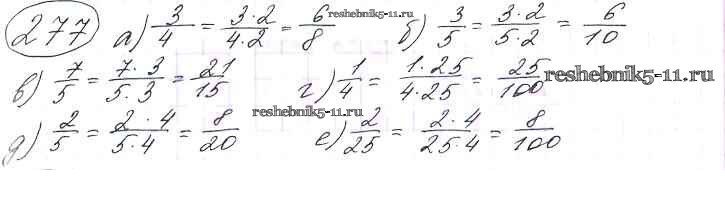 277 а) 3/4 = 3·2/4·2 = 6/8 reshebnik5-11.ru б) 3/5 = 3·2/5·2 = 6/10
в) 7/5 = 7·3/5·3 = 21/15 г) 1/4 = 1·25/4·25 = 25/100 reshebnik5-11.ru
reshebnik5-11.ru
д) 2/5 = 2·4/5·4 = 8/20 е) 2/25 = 2·4/25·4 = 8/100